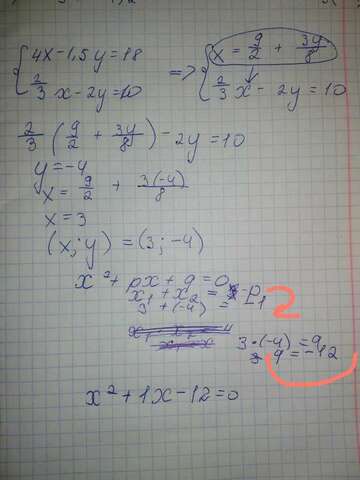 { 4x-1,5y=18 => { x = 9/2 + 3y/8
2/3 x-2y=10 2/3 x - 2y=10
2/3 ( 9/2 + 3y/8 ) - 2y=10
y=-4
x = 9/2 + 3(-4)/8
x=3
(x;y) = (3;-4)
x²+px+q=0
x₁+x₂ = -p
3+(-4) =
3·(-4) = q
q = -12
x²+1x-12=0